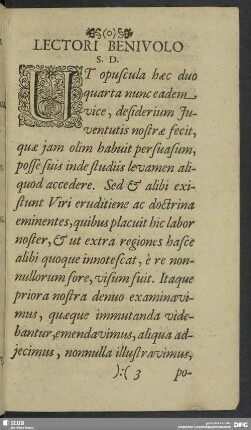 (o)
LECTORI BENIVOLO
S. D.
UT opuscula hæc duo
quarta nunc eadem
vice, desiderium Ju-
ventutis nostræ fecit,
quæ jam olim habuit persuasum,
posse suis inde studiis levamen ali-
quod accedere. Sed & alibi exi-
stunt Viri eruditione ac doctrina
eminentes, quibus placuit hic labor
noster, & ut extra regiones hasce
alibi quoque innotescat, è re non-
nullorum fore, visum fuit. Itaque
priora nostra denuo examinavi-
mus, quæque immutanda vide-
bantur, emendavimus, aliqua ad-
jecimus, nonnulla illustravimus,
):( 3 po-
SLUB
DFG